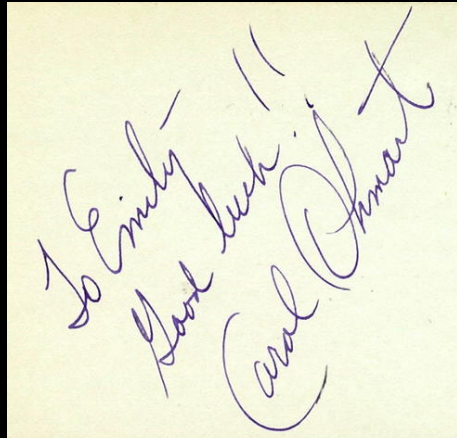 To Emily—
Good luck!!
Carol Ohmart